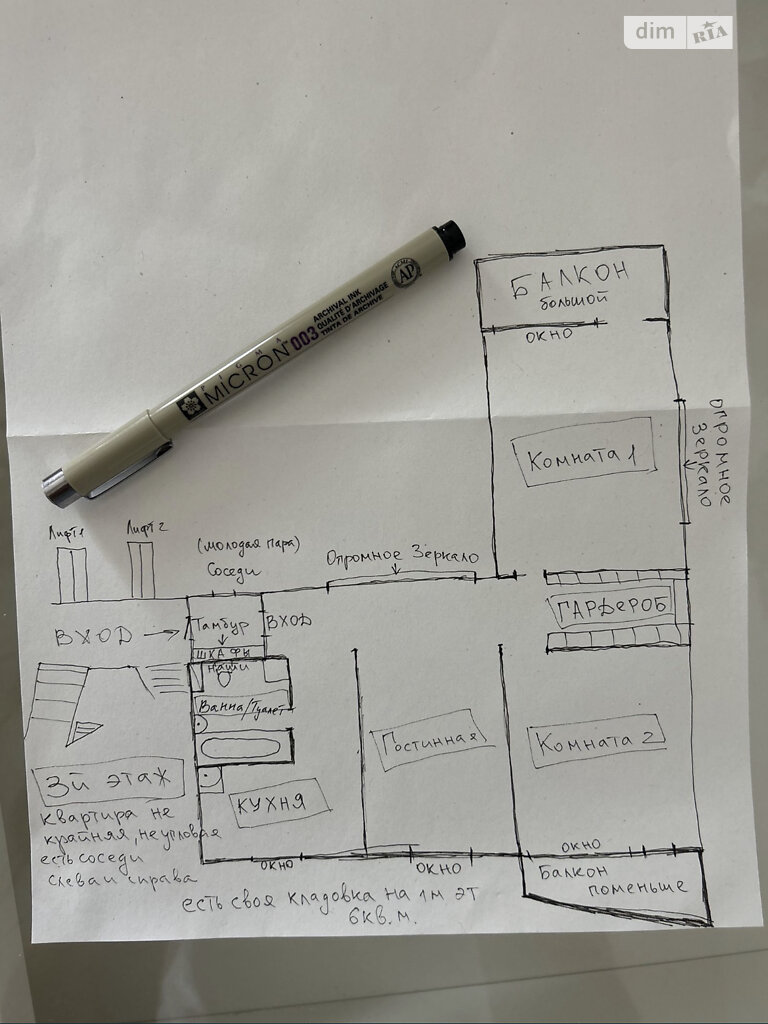 dim RIA
БАЛКОН
большой
ОКНО
Комната 1
ОГРОМНОЕ
Зеркало
ARCHIVAL INK
QUALITÉ D'ARCHIVAGE
TINTA DE ARCHIVE
AP
PIGMA
MICRON™ 003
Лифт 1
Лифт 2
(молодая пара)
Соседи
Огромное Зеркало
ГАРДЕРОБ
ВХОД
Тамбур
ВХОД
ШКАФЫ
наши
Ванна/Туалет
Гостинная
Комната 2
3й этаж
КУХНЯ
квартира не
крайняя, не угловая
есть соседи
слева и справа
ОКНО
ОКНО
ОКНО
Балкон
поменьше
есть своя кладовка на 1м эт
6кв.м.